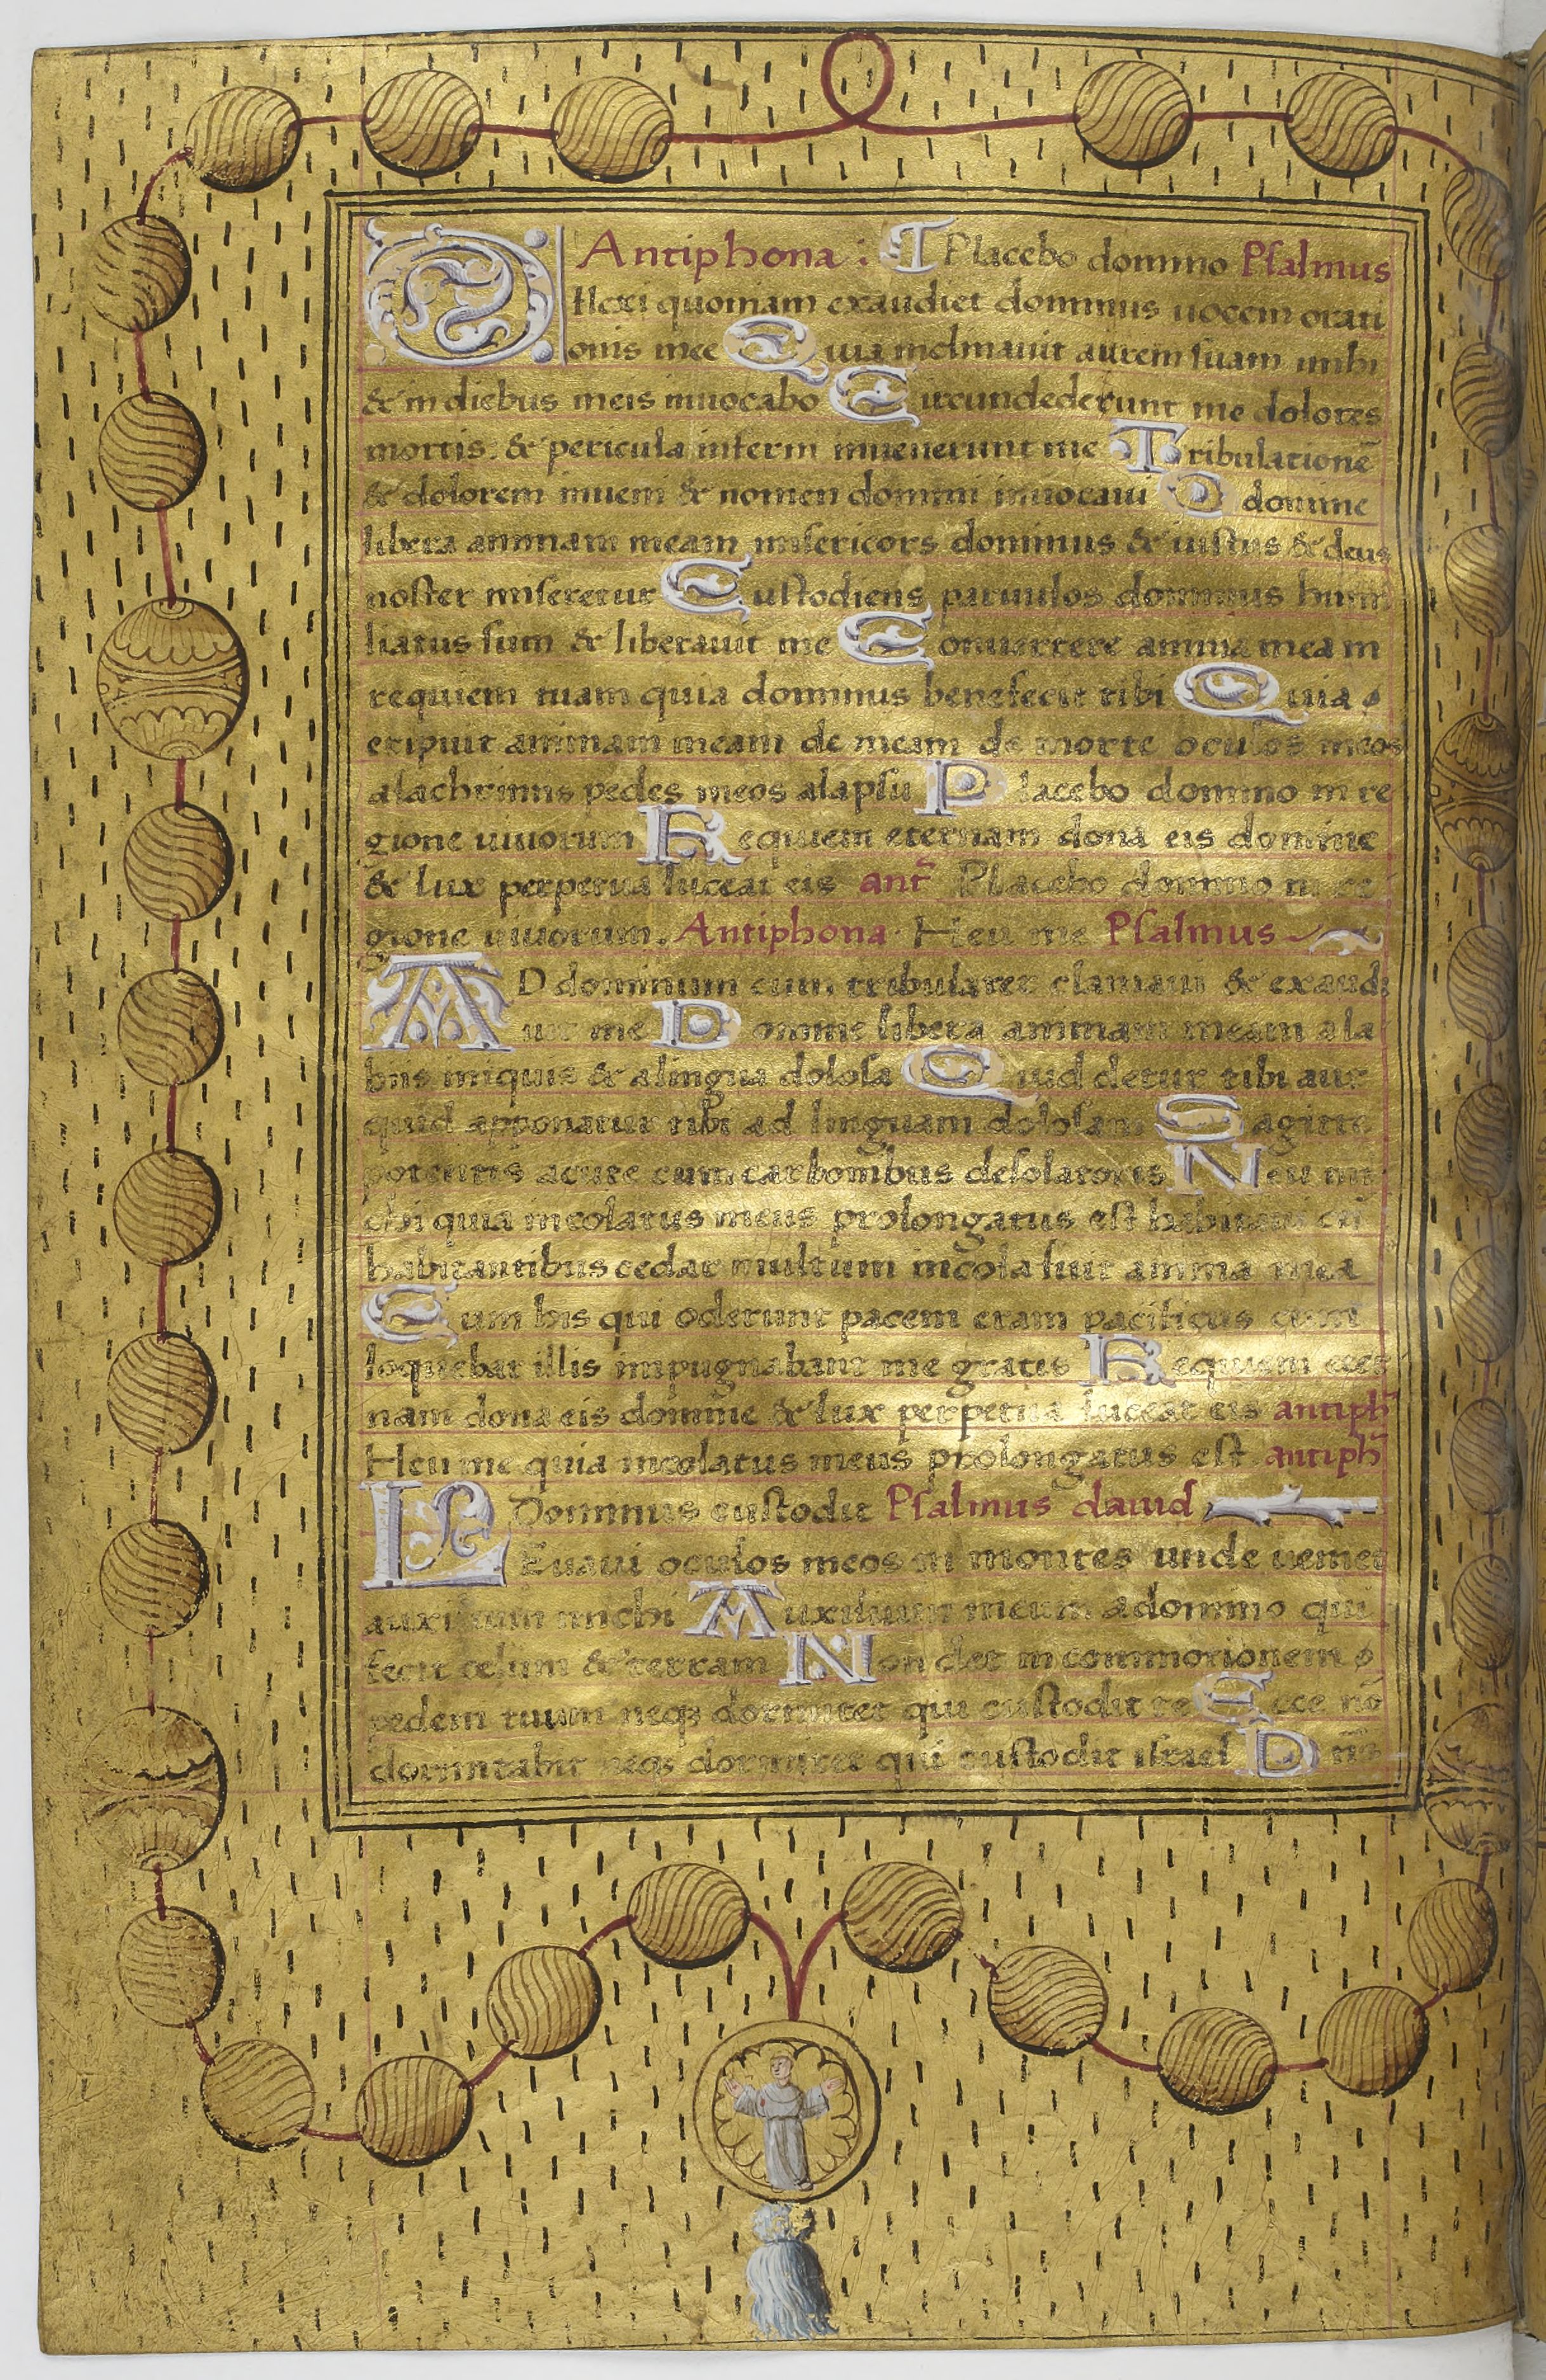 Antiphona: Placebo domino Psalmus
Dilexi quoniam exaudiet dominus uocem orati
onis mee Quia inclinauit aurem suam mihi
& in diebus meis inuocabo Circundederunt me dolores
mortis. & pericula inferni inuenerunt me Tribulationē
& dolorem inueni & nomen domini inuocaui O domine
libera animam meam misericors dominus & iustus & deus
noster miseretur Custodiens paruulos dominus humi
liatus sum & liberauit me Conuertere anima meam
requiem tuam quia dominus benefecit tibi Quia
eripuit animam meam de meam de morte oculos meos
alachrimis pedes meos alapsu Placebo domino in re
gione uiuorum Requiem eternam dona eis domine
& lux perpetua luceat eis ant̄ Placebo domino in re
gione uiuorum. Antiphona Heu me Psalmus
AD dominum cum tribularer clamaui & exaudi
uit me Domine libera animam meam ala
biis iniquis & alingua dolosa Quid detur tibi aut
quid apponatur tibi ad linguam dolosam Sagitte
potentis acute cum carbonibus desolatoriis Neu mi
chi quia incolatus meus prolongatus est habitaui cū
habitantibus cedar multum incola fuit anima mea
Cum his qui oderunt pacem eram pacificus cum
loquebar illis impugnabant me gratis Requiem eter
nam dona eis domine & lux perpetua luceat eis antiph̄
Heu me quia incolatus meus prolongatus est antiph̄
Dominus custodit Psalmus dauid
LEuaui oculos meos in montes unde ueniet
auxilium michi Auxilium meum adomino qui
fecit celum & terram Non det in commotionem
pedem tuum neqꝫ dormitet qui custodit te Ecce nō
dormitabit neqꝫ dormiet qui custodit israel Dn̄s